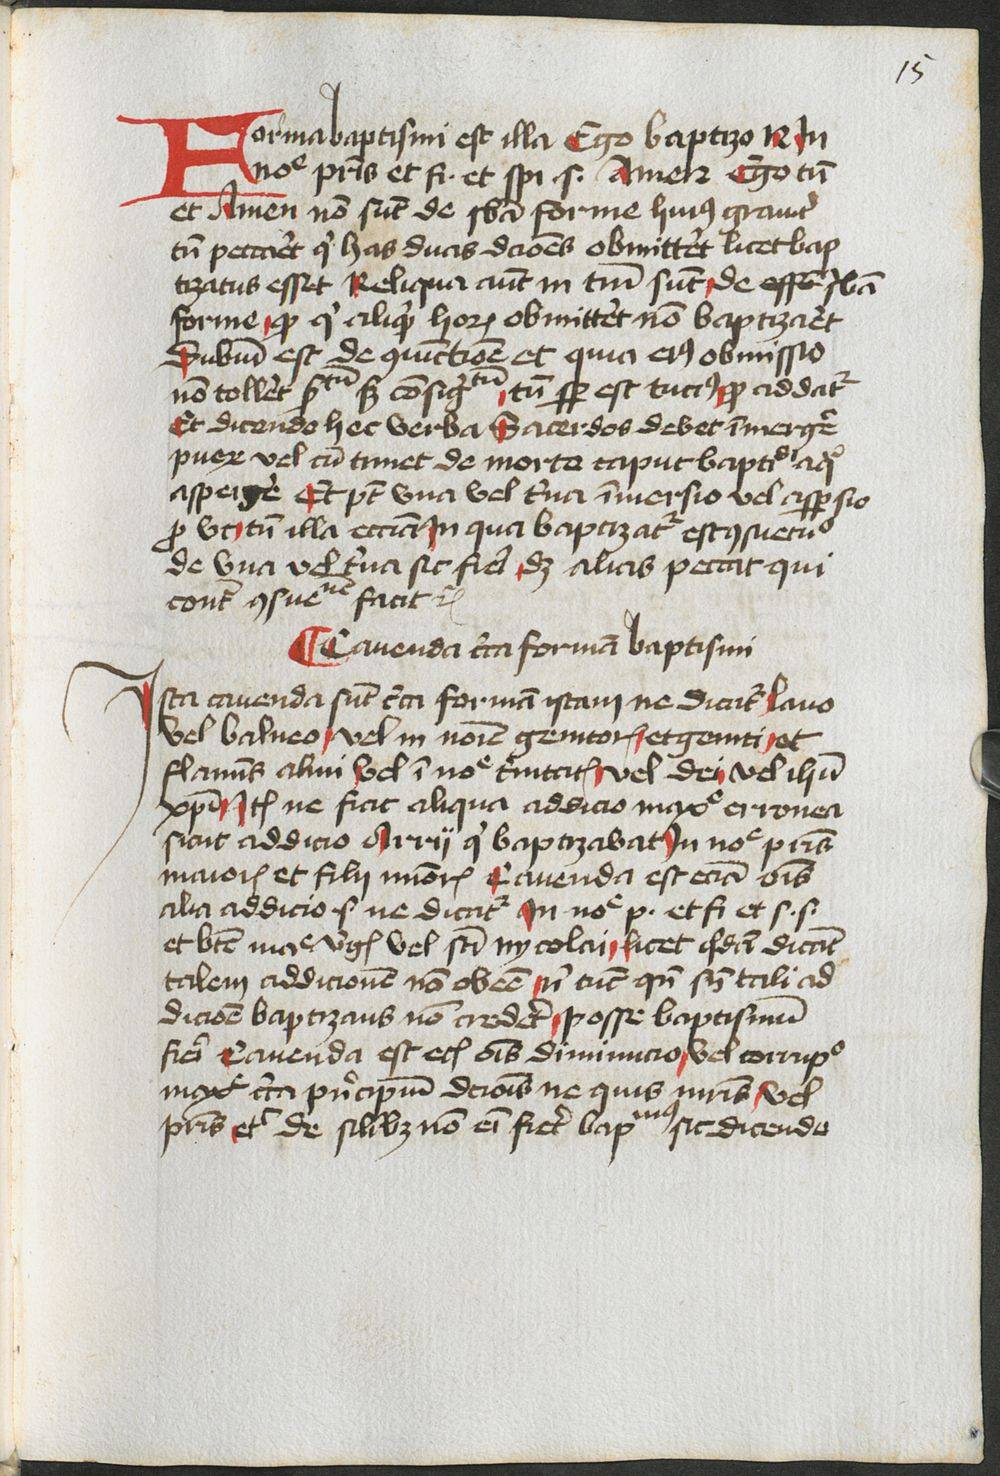 15
Forma baptismi est illa Ego baptizo N In
noe pris et fi. et spi .s. Amen Ego tn̄
et Amen nō sūt de sbā forme huiꝯ grauit̄
tn̄ peccaret qͥ has duas dcōēs obmittēt licet bap
tizatus esset Reliqua aūt in tm̄ sūt de sbā
forme qͥ aliqͥ horꝝ obmittēt nō baptizaēt
Dubiū est de ꝯiūctiōe et quia eiꝯ obmissio
nō tolleret tn̄ sꝑ est tuciꝯ ꝙ addatᷣ
Et dicendo hec verba Sacerdos debet īmergē
pueꝝ vel cū timet de morte caput baptⁱ aqͣ
aspergē Et pt̄ vna vel t̄na īmersio vel asꝑsio
illa ecciā In qua baptizatᷣ est ꝯsuetū
de vna vel t̄na sic fiēi alias peccat qui
cont̄ ꝯsuenē facit
Cauenda c̄ca formā baptismi
Ista cauenda sūt c̄ca formā istam ne dicatᷣ lauo
vel balneo vel in noīe genitorꝭ et geniti et
flamīs almi vel ī noe t̄nitatꝭ vel dei vel ihū
xpī Itꝭ ne fiat aliqua addicio maxe erronea
sicut addicio Arrij qͥ baptizabat In noe pris
maiorꝭ et filij minorꝭ Cauenda est eciā oīs
alia addicio .s. ne dicatᷣ In noe p. et fi et s.s.
et btē mae v̄gꝭ vel scī nycolai licet qͥdā dicāt
talem addicionē nō obēē n̄ tūc qn̄ sn̄ tali ad
dicōē baptizans nō credet posse baptismū
fiēi Cauenda est ecꝭ oīs diminucio vel corrupº
maxe c̄ca pͥncipiū dcōīs ne quis mris vel
pris etᶜ de silibꝫ nō eī fieret bapmꝯ sic dicendo